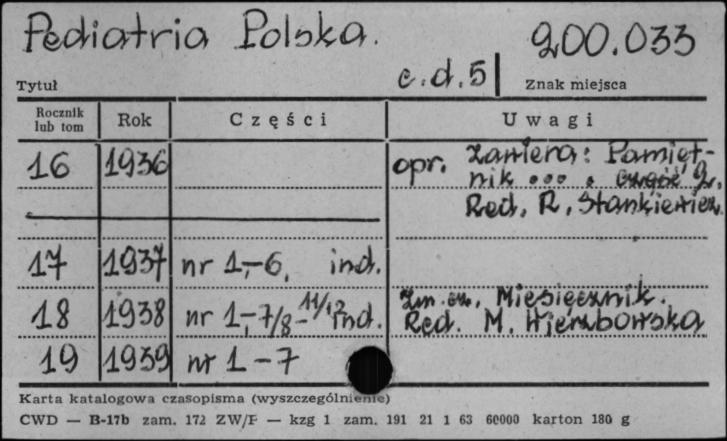 Pediatria Polska. 200.033
Tytuł c.d. 5 Znak miejsca
Rocznik lub tom Rok Części Uwagi
16 1936 opr. zawiera: Pamięt-
nik ... . część 2.
Red. R. Stankiewicz.
17 1937 nr 1,-6, ind.
18 1938 nr 1,-7/8-11/12 ind. zm. cz. Miesięcznik.
Red. M. Wierzbowska
19 1939 nr 1-7
Karta katalogowa czasopisma (wyszczególnienie)
CWD — B-17b zam. 172 ZW/F — kzg 1 zam. 191 21 1 63 60000 karton 180 g